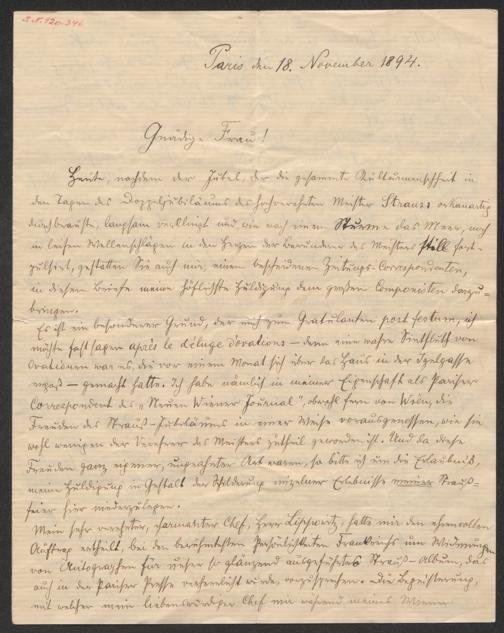 I.N. 120.346
Paris den 18. November 1894.
Gnädige Frau!
Heute, nachdem der Jubel, der die gesammte Kulturmenschheit in
den Tagen des Doppeljubiläums des hochverehrten Meister Strauss orkanartig
durchbrauste, langsam verklingt und wie nach einem Sturme das Meer, noch
in leisen Wellenschlägen in den Herzen der Bewunderer des Meisters still fort-
pulsirt, gestatten Sie auch mir, einem bescheidenen Zeitungs-Correspondenten,
in diesem Briefe meine höflichste Huldigung dem großen Componisten darzu-
bringen.
Es ist ein besonderer Grund, der mich zum Gratulanten post festum, ich
möchte fast sagen après le déluge d'ovations – denn eine wahre Sintfluth von
Ovationen war es, die vor einem Monat sich über das Haus in der Igelgasse
ergoß – gemacht hatte. Ich habe nämlich in meiner Eigenschaft als Pariser
Correspondent des "Neuen Wiener Journal", obwohl fern von Wien, die
Freuden des Strauß-Jubiläums in einer Weise vorausgenossen, wie sie
wohl wenigen der Verehrer des Meisters zutheil geworden ist. Und da diese
Freuden ganz eigener, ungeahnter Art waren, so bitte ich um die Erlaubniß,
meine Huldigung in Gestalt der Schilderung einzelner Erlebnisse meiner Strauß-
feier hier niederzulegen.
Mein sehr verehrter, charmanter Chef, Herr Lippowitz, hatte mir den ehrenvollen
Auftrag ertheilt, bei den berühmtesten Persönlichkeiten Frankreichs um Widmungen
von Autographen für unser so glänzend ausgeführtes Strauß-Album, das
auch in der Pariser Presse verherrlicht wurde, vorzusprechen. Die Begeisterung,
mit welcher mein liebenswürdiger Chef mir während meines Wiener